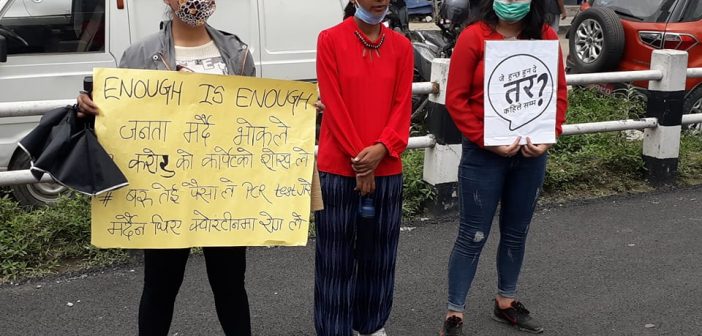 ENOUGH IS ENOUGH
जनता मर्दै भोकले
करोड को कार्पेटको शौख ले
# बरु तेई पैसा ले PCR test गरे
मर्दैन थिए क्वारंटीनमा रोग ले
जे हुन्छ हुन दे
तर?
कहिले सम्म